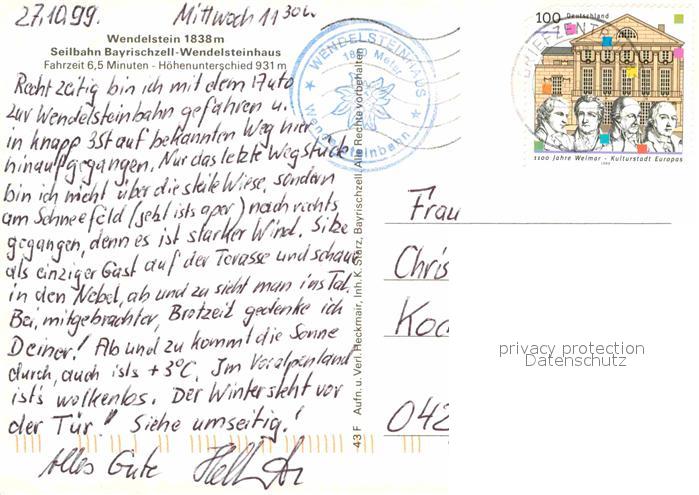 27.10.99. Mittwoch 11 30 h.
Wendelstein 1838 m
Seilbahn Bayrischzell-Wendelsteinhaus
Fahrzeit 6,5 Minuten - Höhenunterschied 931 m
Recht zeitig bin ich mit dem Auto
zur Wendelsteinbahn gefahren u.
in knapp 3 St auf bekannten Weg hier
hinauf gegangen. Nur das letzte Wegstück
bin ich nicht über die steile Wiese, sondern
am Schneefeld (jetzt ists aper) nach rechts
gegangen, denn es ist starker Wind. Sitze
als einziger Gast auf der Terasse und schaue
in den Nebel, ab und zu sieht man ins Tal.
Bei mitgebrachter Brotzeit gedenke ich
Deiner! Ab und zu kommt die Sonne
durch, auch ists +3°C. Im Voralpenland
ist's wolkenlos. Der Winter steht vor
der Tür! Siehe umseitig!
Alles Gute
WENDELSTEINHAUS
1800 Meter
Wendelsteinbahn
43 F Aufn. u. Verl. Heckmair, Inh. K. Storz, Bayrischzell. Alle Rechte vorbehalten
BRIEFZENTRUM
100 Deutschland
1100 Jahre Weimar - Kulturstadt Europas
1999
Frau
Chris
Koc
042
privacy protection
Datenschutz